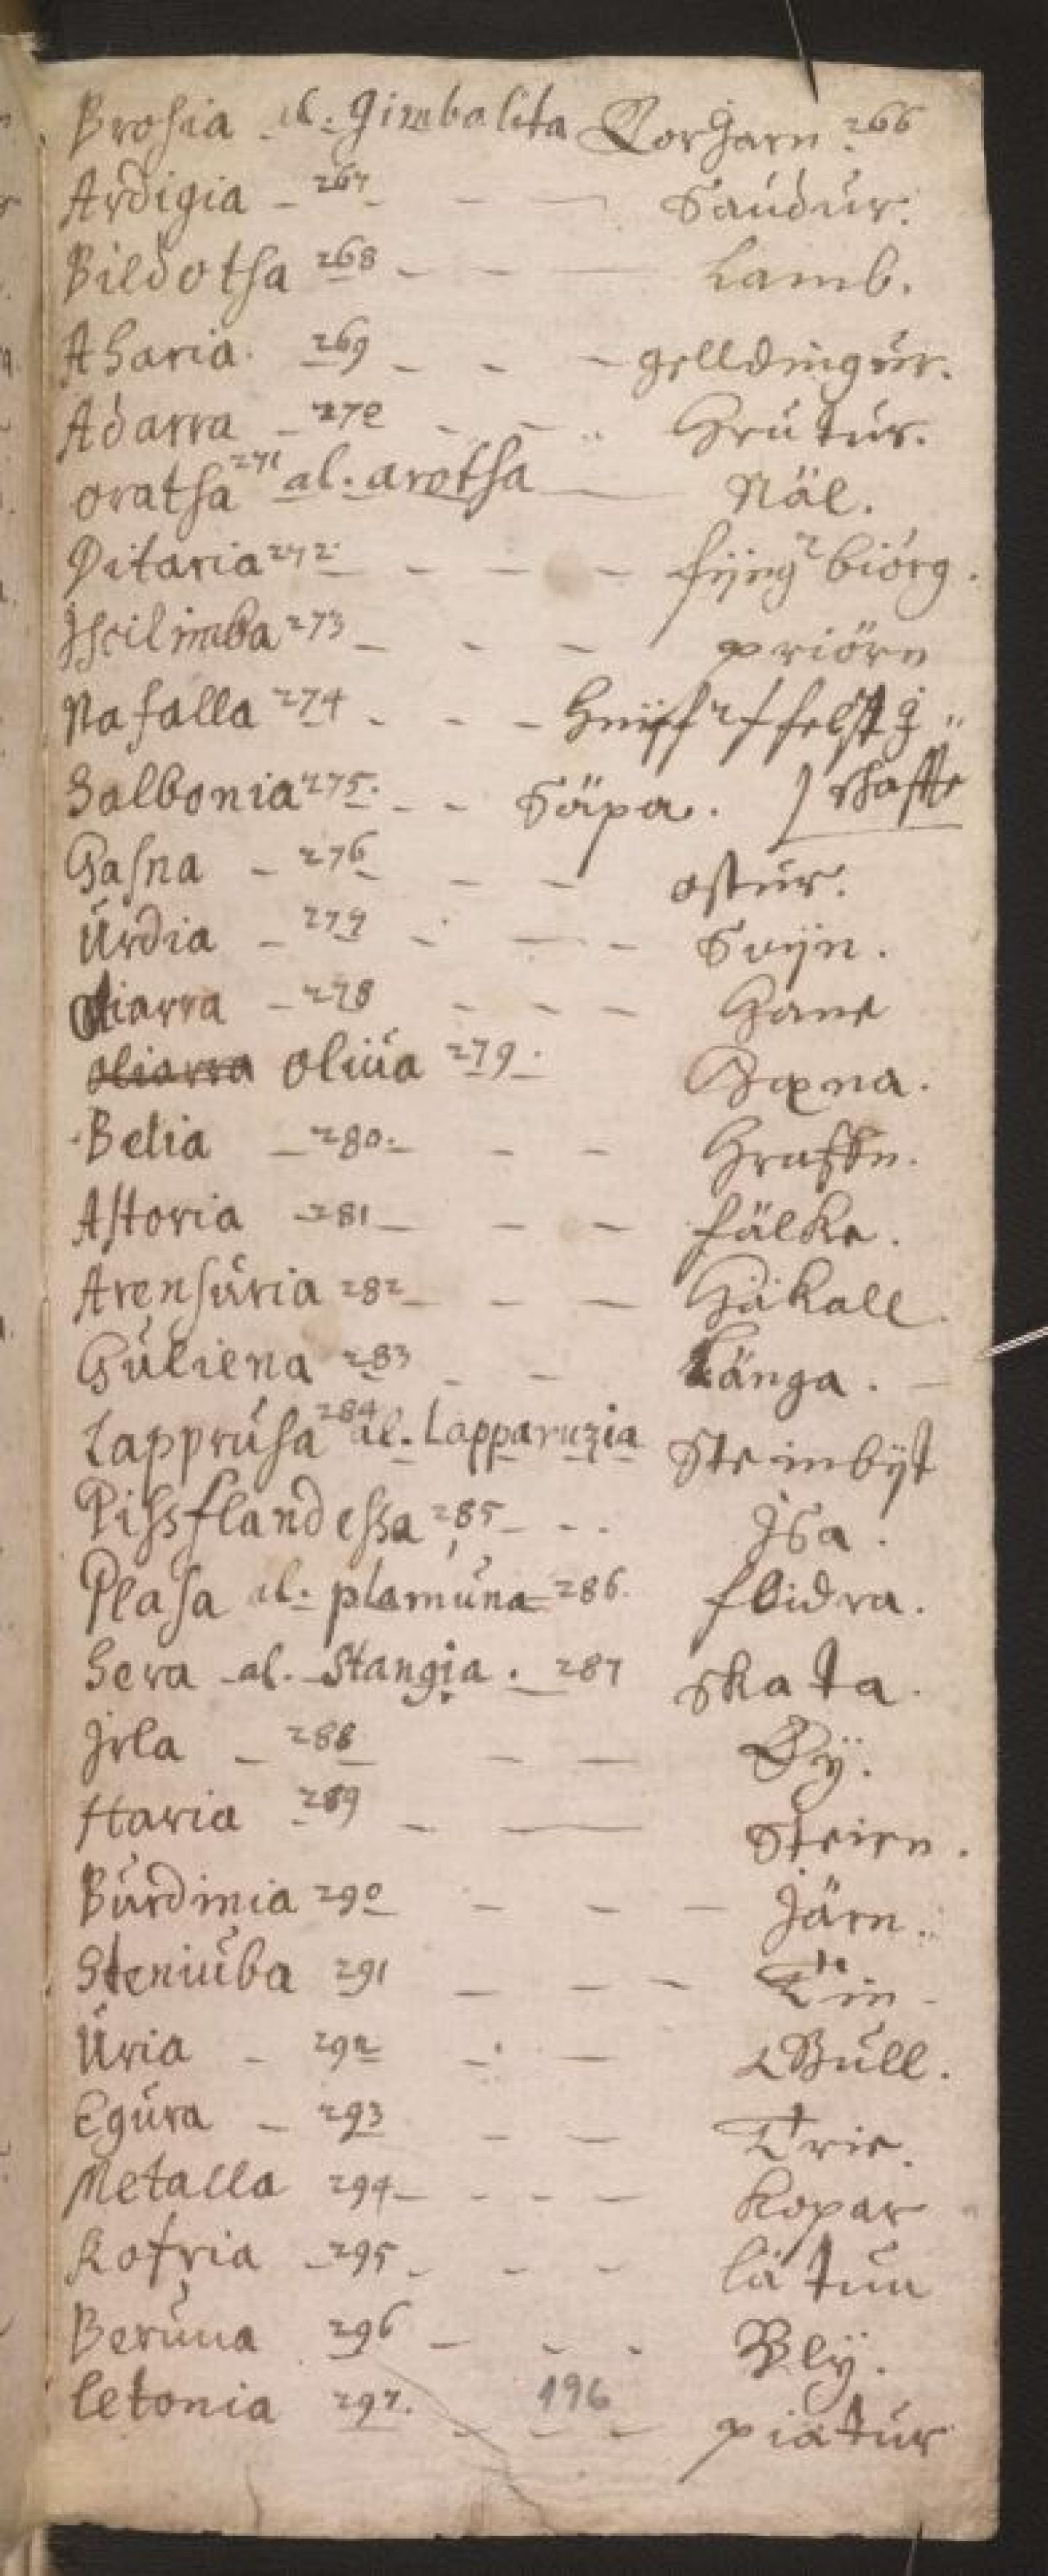 Brosia al. Gimbalita Torgarn. 266
Ardigia 267 Saudur.
Bildotsa 268 Lamb.
Aharia. 269 gelldingur.
Adarra 270 Hrutur.
oratsa 271 al. arotsa Näl.
Ditaria 272 fijngr biörg.
Jscilimba 273 priörn
Nafalla 274
Salbonia 275. Säpa. skaffte
Gasna 276 ostur.
Urdia 277 Svijn.
oliarra 278 Hane
oliarra oliua 279. Hæna.
Belia 280. Hraffn.
Astoria 281 fälke.
Arensuria 282 Häkall.
Guliena 283 Länga.
Lapprusa 284 al. Lapparuzia Steinbijt
Pissflandessa 285 Jsa.
Plasa al. plamuna 286. flidra.
Sera al. Stangia. 287 skata.
Jrla 288 Ey.
Haria 289 Steirn.
Burdinia 290 Järn.
Steniuba 291 Tin
Uria 292 Gull.
Egura 293 Trie.
Metalla 294 kopar
Kofria 295 lätun
Beruna 296 Blÿ.
letonia 297. 196 piatur